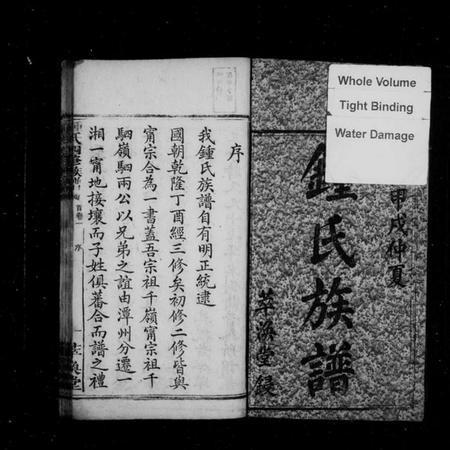 Whole Volume
Tight Binding
Water Damage
甲戌仲夏
鍾氏族譜
萃渙堂鐫
序
我鍾氏族譜自有明正統逮
國朝乾隆丁酉經三修矣初修二修皆與
甯宗合為一書蓋吾宗祖千嶺甯宗祖千
駟嶺駟兩公以兄弟之誼由潭州分遷一
湘一甯地接壤而子姓俱蕃合而譜之禮
首卷一 序
萃渙堂